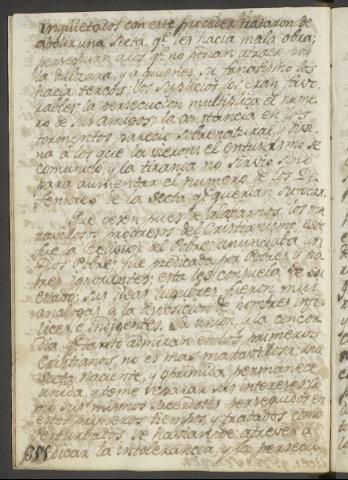 Inquietados con este proceder trataron de
abolir una Secta, qe. les hacia mala obra;
perseguian a los qe. no podian atraer por
la dulzura, y a quienes su fanatismo los
hacia tercos; los suplicios les eran favo-
rables; la persecucion multiplica el nume-
ro de sus amigos; la constancia en los
tormentos parecio sobrenatural, y divi-
na a los qe. la vieron; el entusiasmo se
comunicò, y la tirania no sirvio sino
para aumentar el numero de los De-
fensores de la Secta qe. querian sufocar.
Que dexen pues de alabarnos los ma-
ravillosos progresos del Cristianismo. Este
fue la Religion del Pobre; anunciaba un
Dios Pobre; fue predicada por Pobres, y po-
bres ignorantes; esta les consuela de su
estado; sus ideas lugubres fueron muy
analogas a la disposicion de hombres infe-
lices, e indigentes. La union, y la concor-
dia qe. tanto admiran en los primeros
Cristianos no es mas maravillosa; una
Secta naciente, y oprimida permanece
unida, y teme separar sus intereses. Co-
mo sus mismos Sacerdotes perseguidos en
estos primeros tiempos y tratados como
perturbados se habian de atrever a
predicar la intolerancia, y la persecu-